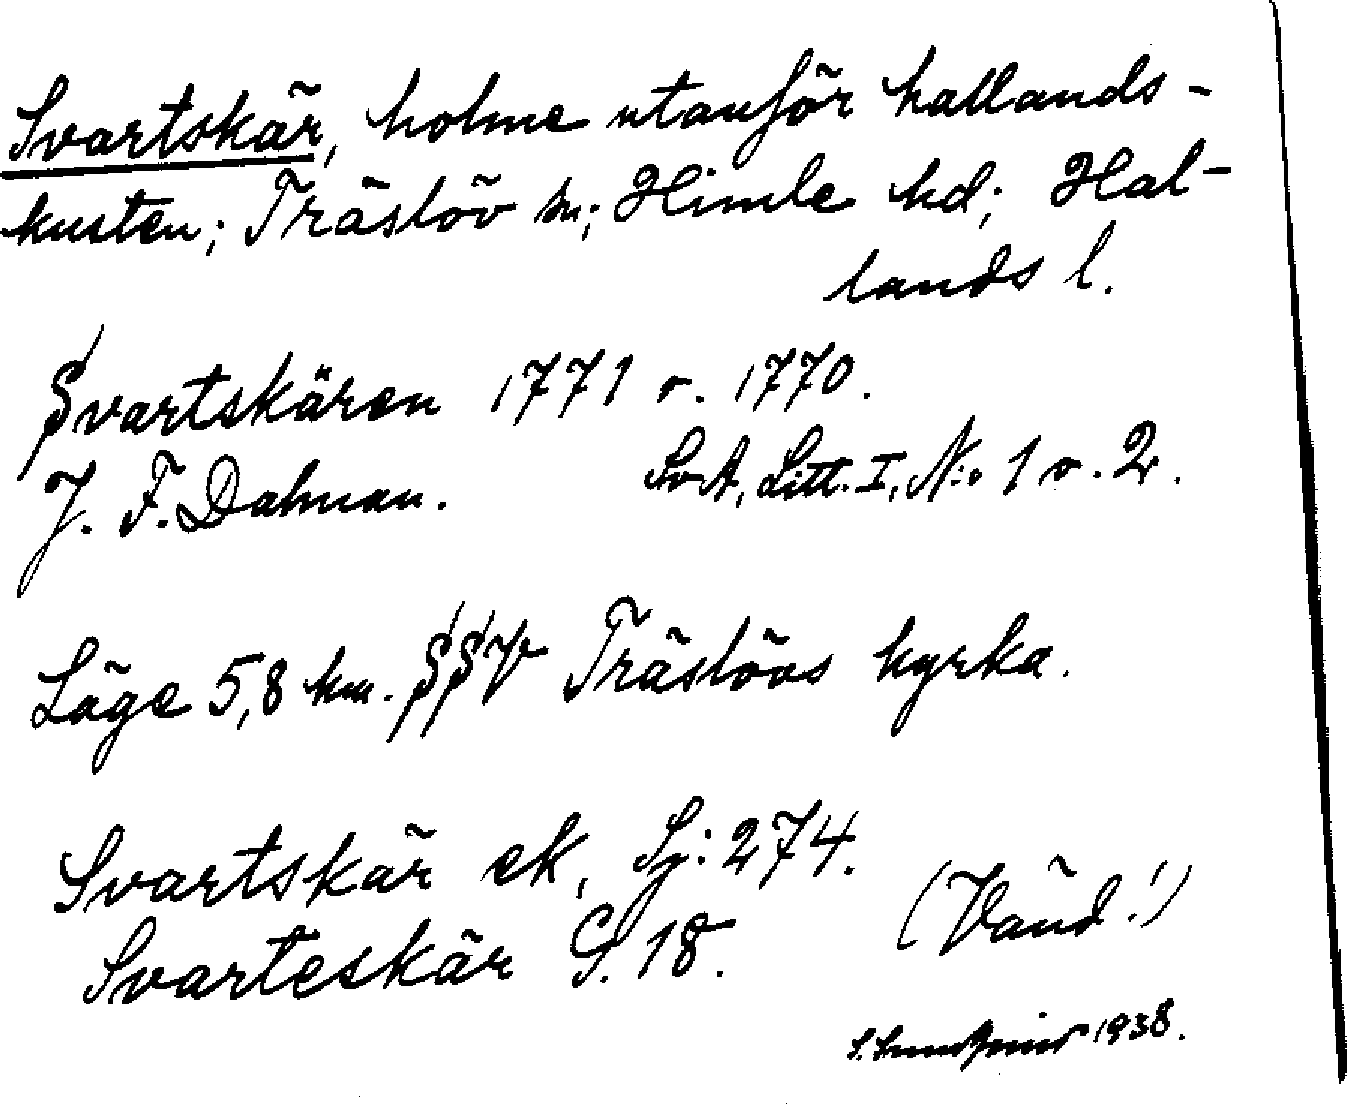 Svartskär, holme utanför hallands-
kusten; Träslöv sn; Himle hd; Hal-
lands l.
Svartskären 1771 o. 1770.
J. F. Dalman. SvA, Litt. I, N:o 1 o. 2.
Läge 5,8 km. SSV Träslövs kyrka.
Svartskär ek, Sj: 274.
Svarteskär G. 18. (Vänd!)
1938.